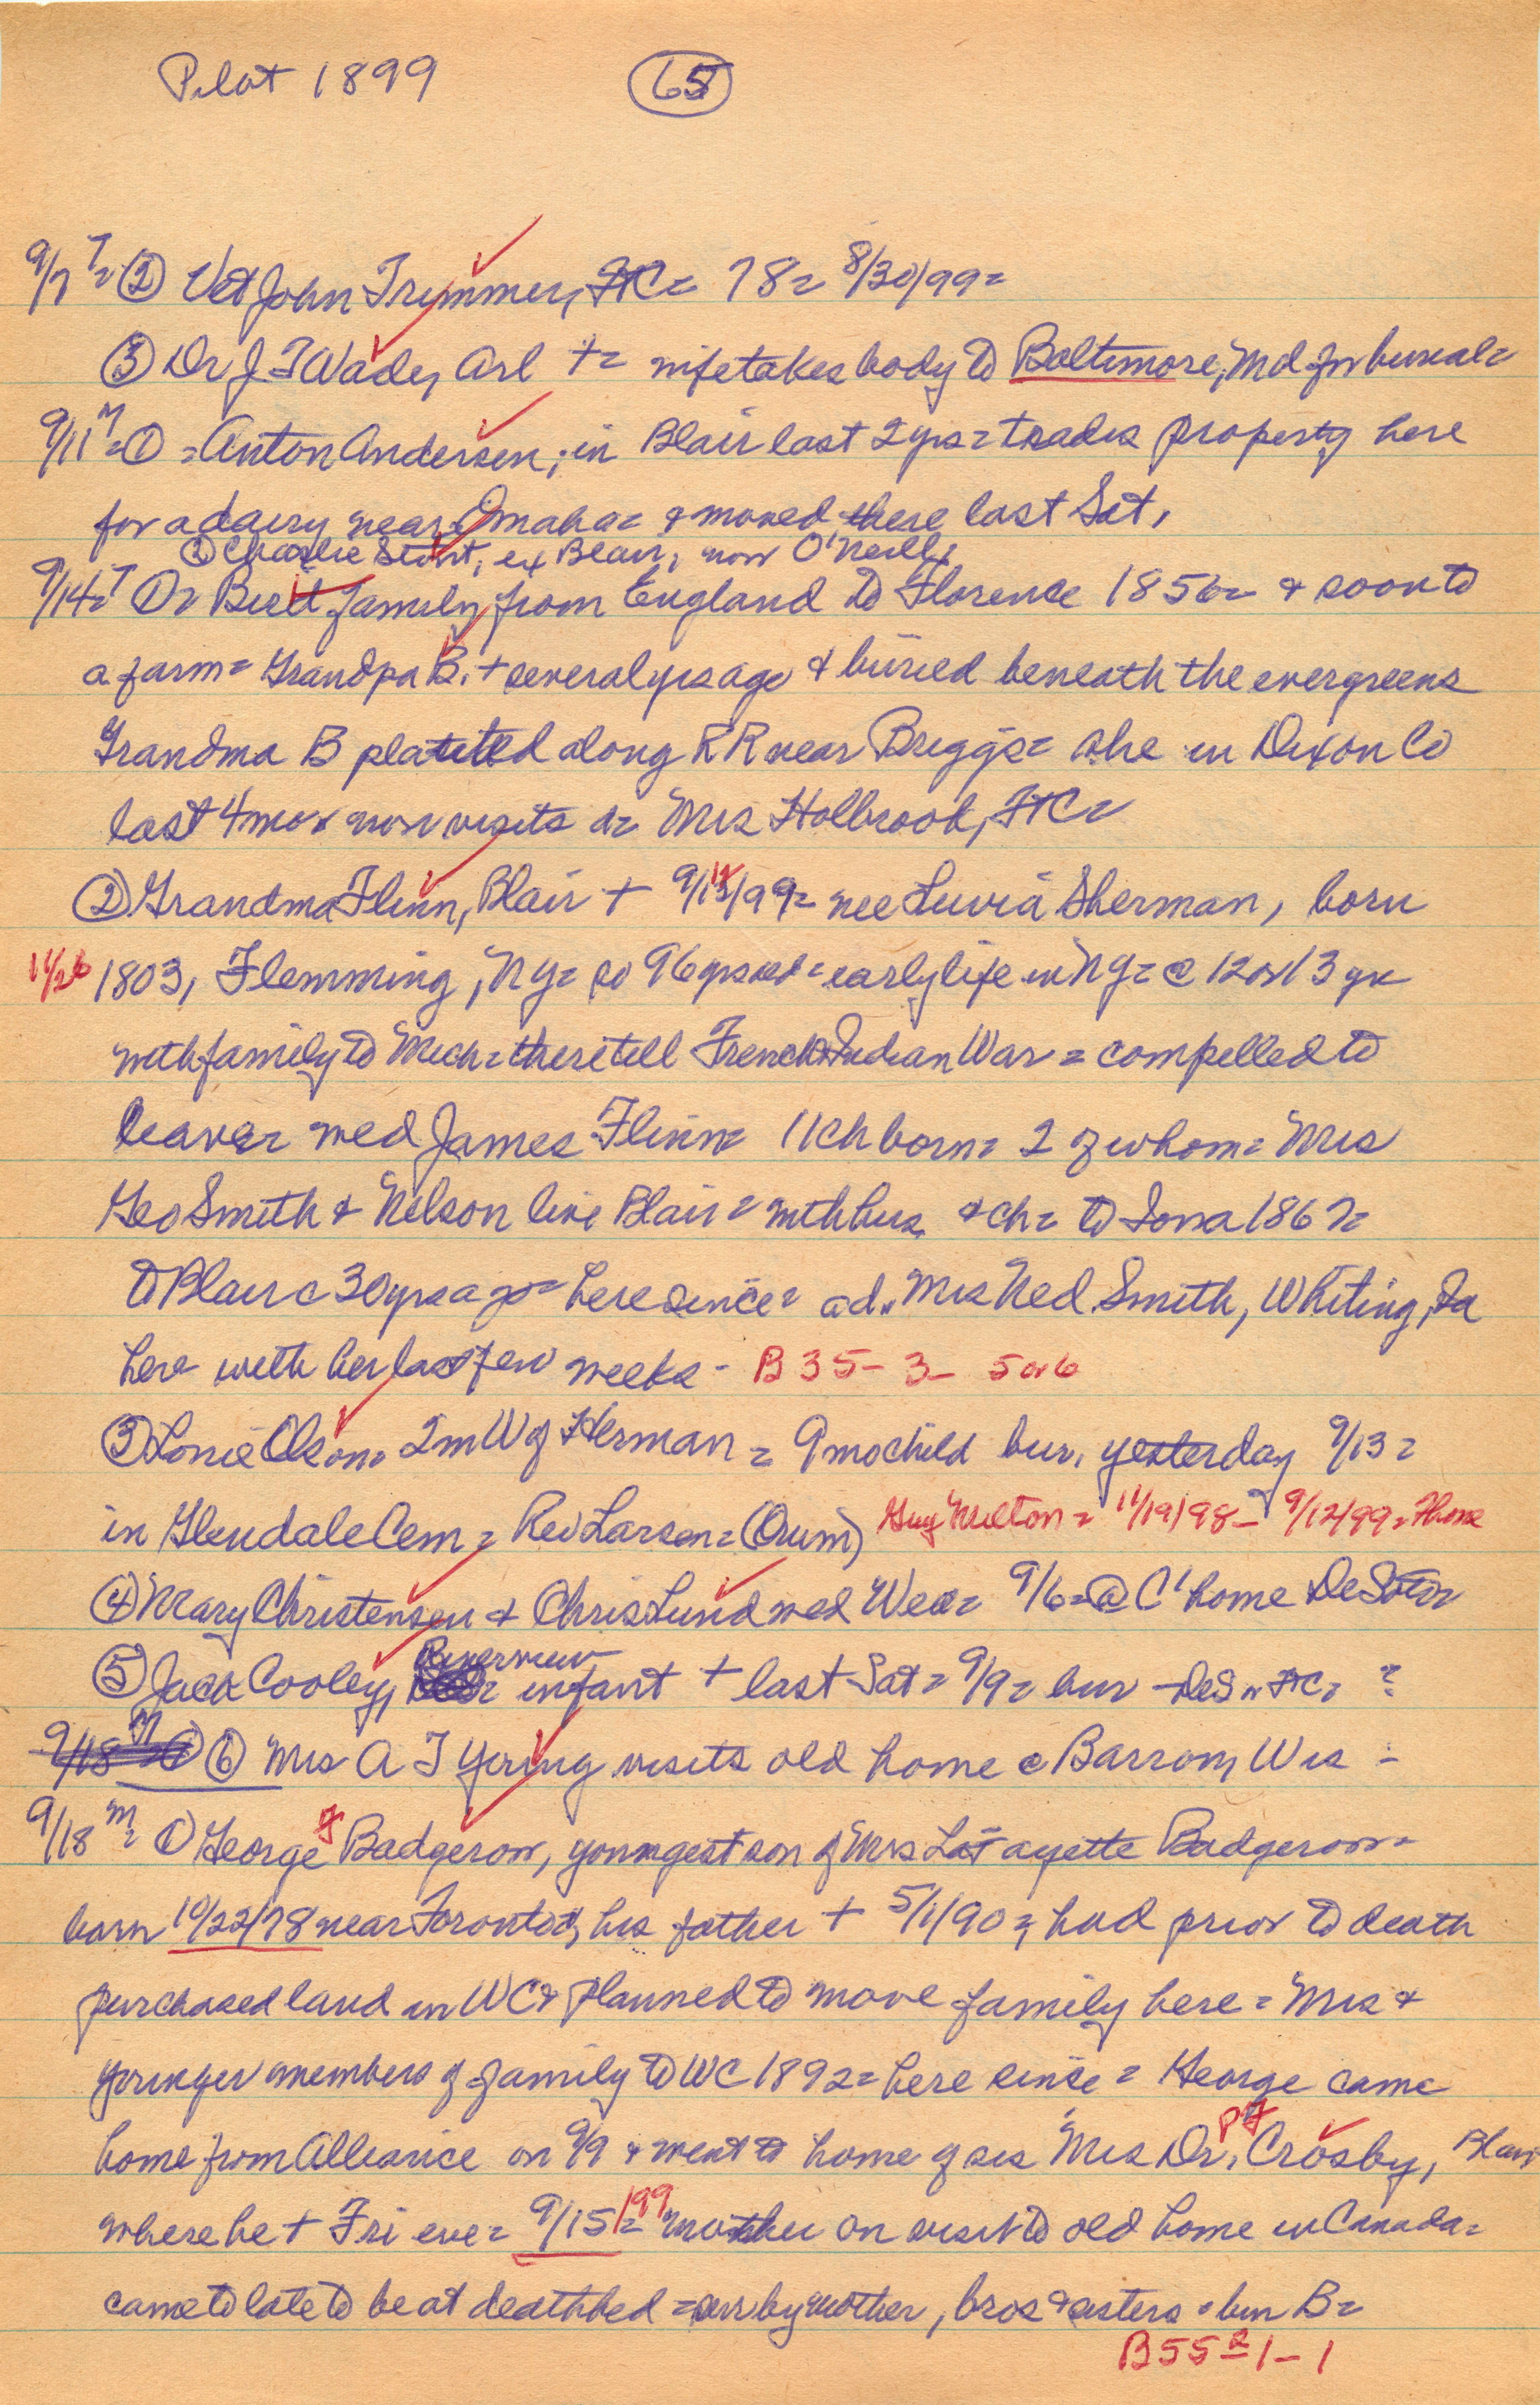 Pilot 1899 65
9/7 T= ② Vet John Trimmer, FtC= 78= 8/30/99=
③ Dr J T Wade, Arl += wife takes body to Baltimore, Md for burial=
9/11 M= ① = Anton Andersen, in Blair last 2 yrs= trades property here
for a dairy near Omaha= & moved there last Sat,
② Charlie ex Blair, now O'Neill,
9/14= T ①= Burt family from England to Florence 1856= & soon to
a farm= Grandpa B. + several yrs ago & buried beneath the evergreens
Grandma B planted along RR near Briggs= she in Dixon Co
last 4 mos now visits d= Mrs Holbrook, FtC=
② Grandma Flinn, Blair + 9/12/99= nee Luvia Sherman, born
11/26 1803, Flemming, NY= so 96 yrs old= early life in NY= @ 12 or 13 yr
with family to Mich= there till French & Indian War= compelled to
leave= med James Flinn= 11 ch born= 2 of whom= Mrs
Geo Smith & Nelson live Blair= with hus & ch= to Iowa 1867=
to Blair c 30 yrs ago= here since= ad. Mrs Ned Smith, Whiting, Ia
here with her last few weeks- B 35-3- 5 or 6
③ Louie Olson= 2 m W of Herman= 9 mo child bur. yesterday 9/13=
in Glendale Cem= Rev Larsen= (Orum) Guy Milton= 11/19/98- 9/12/99=
④ Mary Christensen & Chris Lund med Wed= 9/6= @ C' home DeSoto=
⑤ Jack Cooley, Riverview infant + last Sat= 9/9= bur DeS or FtC= ?
9/18 M= ① ⑥ Mrs A J Young visits old home @ Barron, Wis -
9/18 M= ① George F Badgerow, youngest son of Mrs LaFayette Badgerow=
born 10/22/78 near Toronto= his father + 5/1/90= had prior to death
purchased land in WC & planned to move family here= Mrs &
younger members of family to WC 1892= here since= George came
home from Alliance on 9/9 & went to home of sis Mrs Dr. P J Crosby, Blair
where he + Fri eve= 9/15/99= mother on visit to old home in Canada=
came to late to be at deathbed= sur by mother, bros & sisters= bur B=
B 55=2 1-1